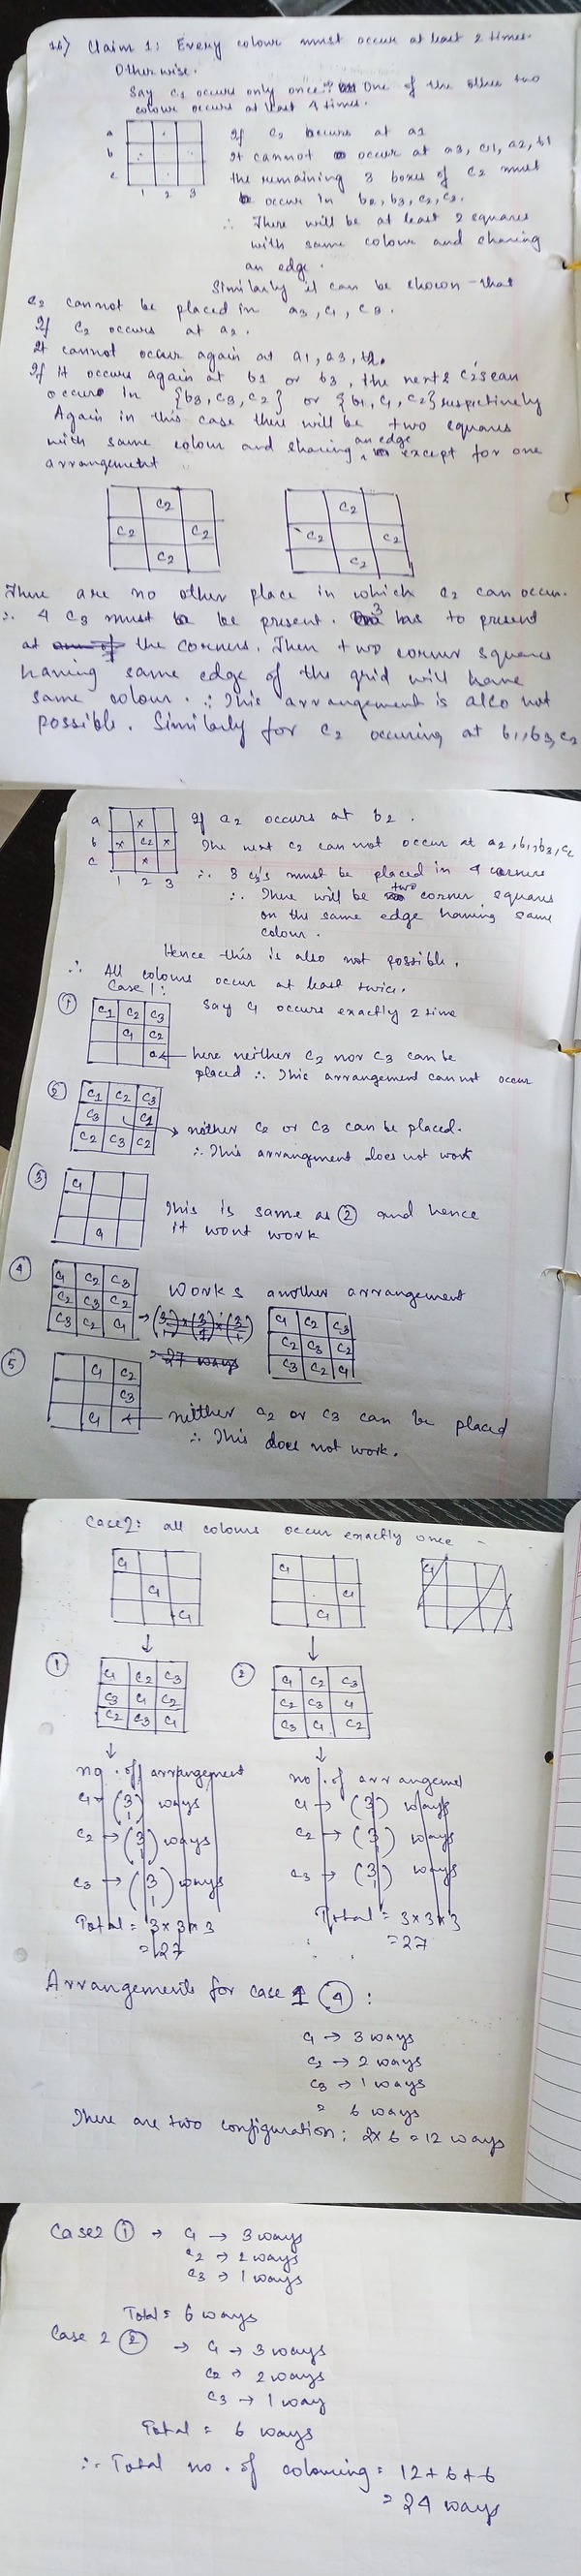 Claim 1: Every colour must occur at least 2 times.
Otherwise.
Say c1 occurs only once. One of the other two
colour occurs at least 4 times.
a
b
c
1 2 3
If c2 occurs at a1
It cannot occur at a3, c1, a2, b1
the remaining 3 boxes of c2 must
occur in b2, b3, c2, c3.
∴ There will be at least 2 squares
with same colour and sharing
an edge.
Similarly it can be shown that
c2 cannot be placed in a3, c1, c3.
If c2 occurs at a2.
It cannot occur again at a1, a3, b2.
If it occurs again at b1 or b3, the next 2 c2's can
occur in {b3, c3, c2} or {b1, c1, c2} respectively
Again in this case there will be two squares
with same colour and sharing an edge except for one
arrangement
c2
c2 c2
c2
c2
c2 c2
c2
There are no other place in which c2 can occur.
∴ 4 c3 must be present. 3 has to present
at the corners. Then two corner squares
having same edge of the grid will have
same colour. ∴ This arrangement is also not
possible. Similarly for c2 occuring at b1, b3, c2
a x
b x c2 x
c x
1 2 3
If c2 occurs at b2.
The next c2 can not occur at a2, b1, b3, c2
∴ 3 c2's must be placed in 4 corners
∴ There will be two corner squares
on the same edge having same
colour.
Hence this is also not possible.
∴ All colours occur at least twice.
Case 1:
Say c1 occurs exactly 2 time
① c1 c2 c3
c1 c2
here neither c2 nor c3 can be
placed ∴ This arrangement cannot occur
② c1 c2 c3
c3 c1
c2 c3 c2
neither c2 or c3 can be placed.
∴ This arrangement does not work
③ c1
c1
This is same as ② and hence
it wont work
④ c1 c2 c3
c2 c3 c2
c3 c2 c1
works another arrangement
→ (3 1) × (3 1) × (3 1)
= 27 ways
c1 c2 c3
c2 c3 c2
c3 c2 c1
⑤ c1 c2
c3
c1
neither c2 or c3 can be placed
∴ This does not work.
Case 2: all colours occur exactly once
c1
c1
c1
c1
c1
c1
c1
① c1 c2 c3
c3 c1 c2
c2 c3 c1
② c1 c2 c3
c2 c3 c1
c3 c1 c2
no. of arrangement
c1 → (3 1) ways
c2 → (3 1) ways
c3 → (3 1) ways
Total = 3 × 3 × 3
= 27
no. of arrangemet
c1 → (3 1) ways
c2 → (3 1) ways
c3 → (3 1) ways
Total = 3 × 3 × 3
= 27
Arrangements for case 1 ④ :
c1 → 3 ways
c2 → 2 ways
c3 → 1 ways
= 6 ways
There are two configuration; 2 × 6 = 12 ways
Case 2 ① → c1 → 3 ways
c2 → 2 ways
c3 → 1 ways
Total = 6 ways
Case 2 ② → c1 → 3 ways
c2 → 2 ways
c3 → 1 way
Total = 6 ways
∴ Total no. of colouring = 12 + 6 + 6
= 24 ways